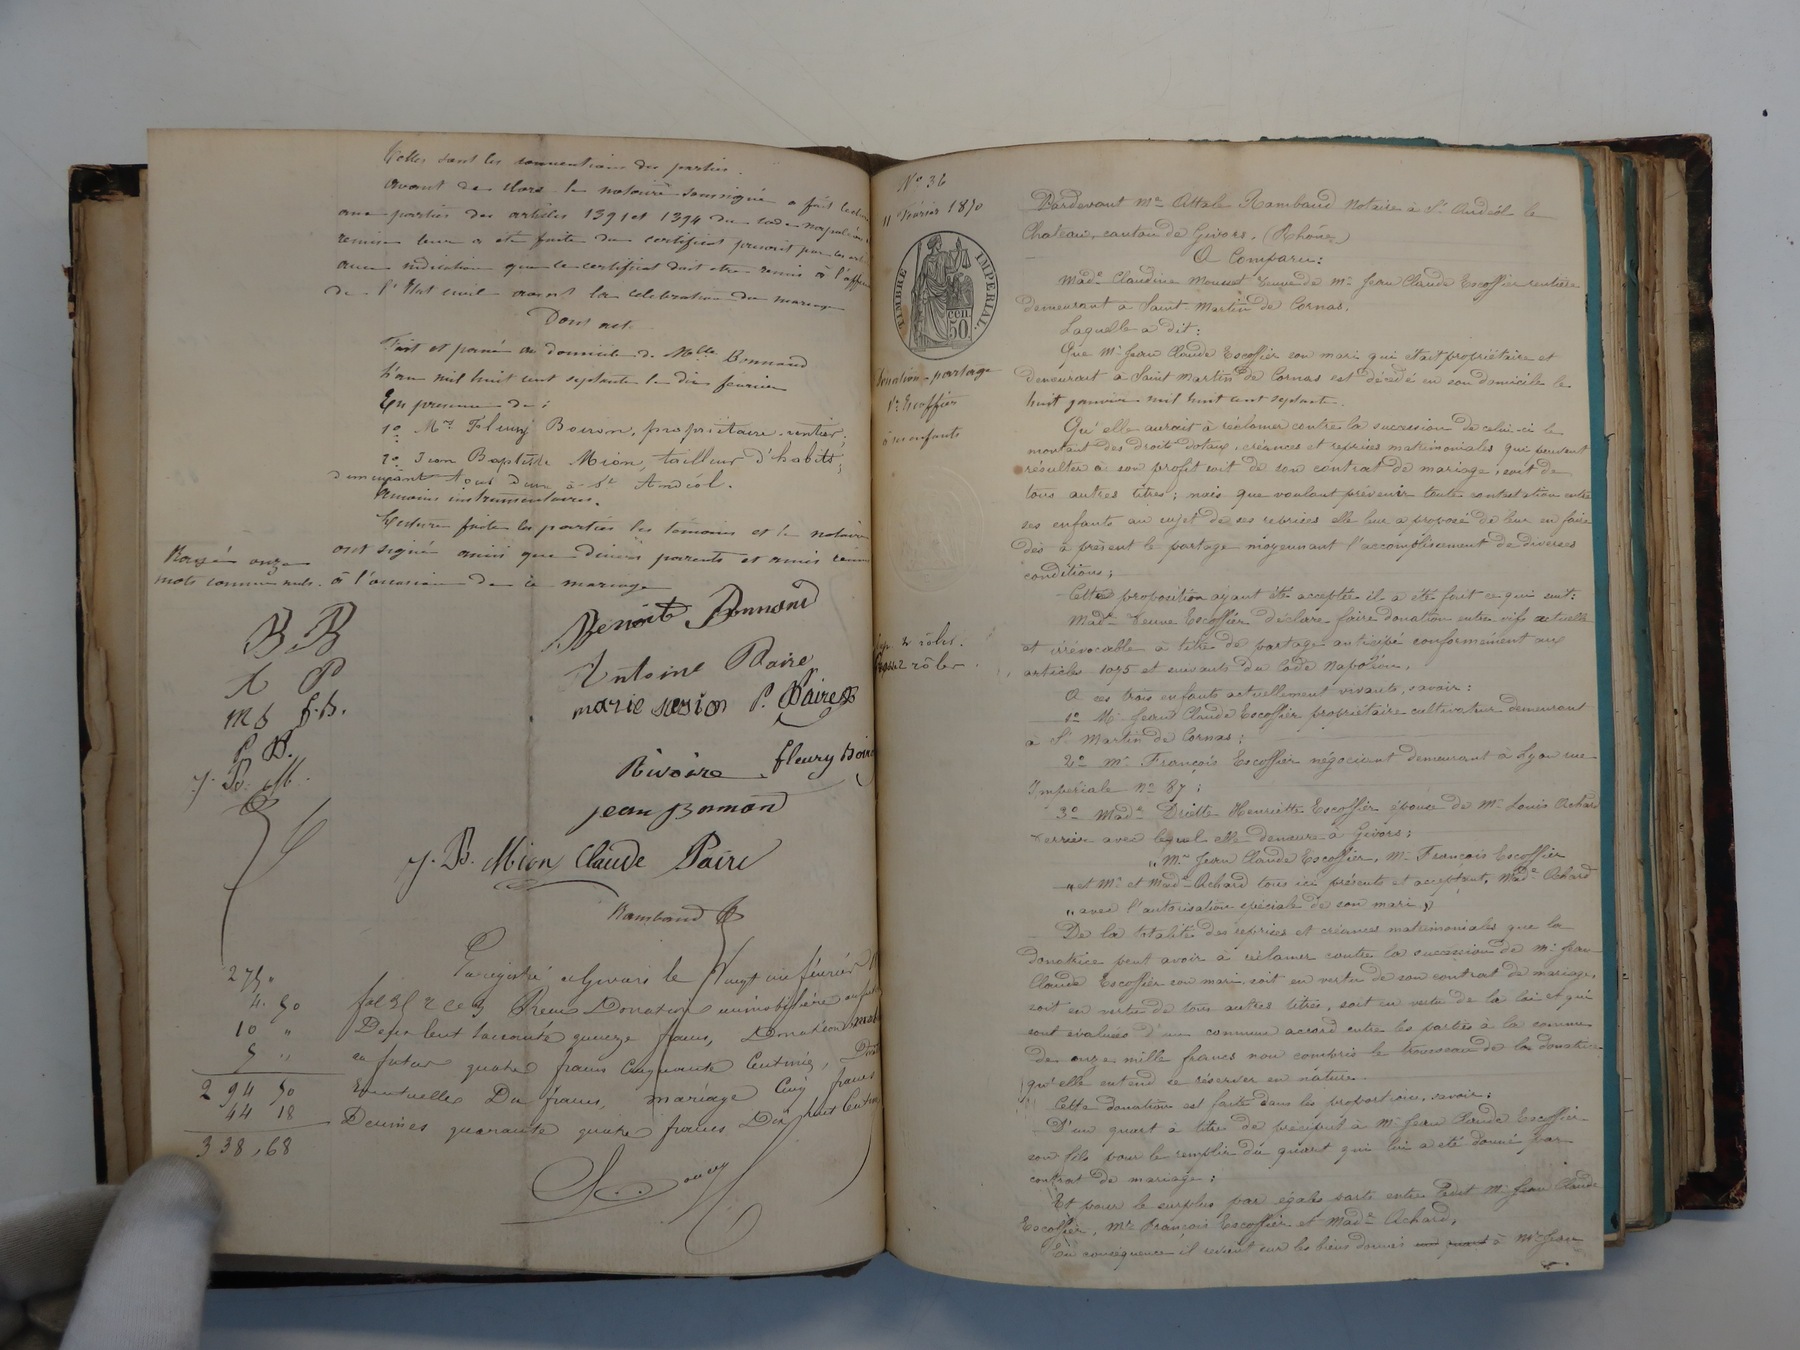 Telles sont les conventions des parties.
Avant de clore le notaire soussigné a fait lecture
aux parties des articles 1391 et 1394 du code napoléon,
remise leur a été faite du certificat prescrit par
avec indication que ce certificat doit etre remis à l'
de l'Etat civil avant la célébration du mariage
Dont acte
Fait et passé au domicile de Melle Bonnand
L'an mil huit cent septante le dix fevrier
En presence de :
1o Mr Fleury Boiron, propriétaire rentier,
2o Jean Baptiste Mion, tailleur d'habits,
demeurant tous deux à St Andéol.
témoins instrumentaires.
Lecture faite les parties les témoins et le notaire
ont signé ainsi que divers parents et amis
à l'occasion de ce mariage
Rayé onze
mots comme nuls.
B B
A P
M S J. B.
P. B.
J. B. M.
Benoîte Bonnand
Antoine Paire
marie P. Paire
Rivoire fleury Boiron
jean Bonnand
J. B. Mion Claude Paire
Rambaud
Enregistré à Givors le Vingt un février
Reçu Donation immobilière
Deux Cent Soixante quinze francs, Donation
en futur quatre francs Cinquante Centimes,
Eventuelle Dix francs, mariage Cinq francs
Décimes quarante quatre francs Dix huit Centimes
275 "
4. 50
10 "
5 "
294 50
44 18
338,68
No 36
11 Février 1870
TIMBRE IMPERIAL.
50 cen.
Donation-partage
Ve Escoffier
à ses enfants
Exp. 2 rôles.
Grosse 2 rôles
Pardevant Me Attale Rambaud Notaire à St Andéol le
Chateau, canton de Givors, (Rhône)
A Comparu :
Made Claudine Mousset Veuve de Mr Jean Claude Escoffier rentière
demeurant à Saint-Martin de Cornas,
Laquelle a dit :
Que Mr Jean Claude Escoffier son mari qui était propriétaire et
demeurant à Saint Martin de Cornas est décédé en son domicile le
huit janvier mil huit cent septante.
Qu'elle aurait à réclamer contre la succession de celui-ci le
montant des droits dotaux, créances et reprises matrimoniales qui peuvent
résulter à son profit soit de son contrat de mariage, soit de
tous autres titres ; mais que voulant prévenir toute contestation entre
ses enfants au sujet de ses reprises elle leur a proposé de leur en faire
dès à présent le partage moyennant l'accomplissement de diverses
conditions ;
Cette proposition ayant été acceptée il a été fait ce qui suit :
Made Veuve Escoffier déclare faire donation entre vifs actuelle
et irrévocable à titre de partage anticipé conformément aux
articles 1075 et suivants du Code Napoléon,
A ses trois enfants actuellement vivants, savoir :
1o Mr Jean Claude Escoffier propriétaire cultivateur demeurant
à St Martin de Cornas ;
2o Mr François Escoffier négociant demeurant à Lyon rue
Impériale No 87 ;
3o Made Driette Henriette Escoffier épouse de Mr Louis Achard
verrier avec lequel elle demeure à Givors ;
" Mr Jean Claude Escoffier, Mr François Escoffier
" et Mr et Made Achard tous ici présents et acceptant, Made Achard
" avec l'autorisation spéciale de son mari "
De la totalité des reprises et créances matrimoniales que la
donatrice peut avoir à réclamer contre la succession de Mr Jean
Claude Escoffier son mari, soit en vertu de son contrat de mariage,
soit en vertu de tous autres titres, soit en vertu de la loi et qui
sont évaluées d'un commun accord entre les parties à la somme
de onze mille francs non compris le trousseau de la donatrice
qu'elle entend se réserver en nature.
Cette donation est faite dans les proportions, savoir :
D'un quart à titre de préciput à Mr Jean Claude Escoffier
son fils pour le remplir du quart qui lui a été donné par
contrat de mariage ;
Et pour le surplus par égales parts entre Mr Jean Claude
Escoffier, Mr François Escoffier et Made Achard,
En conséquence il revient sur les biens donnés un quart à Mr Jean